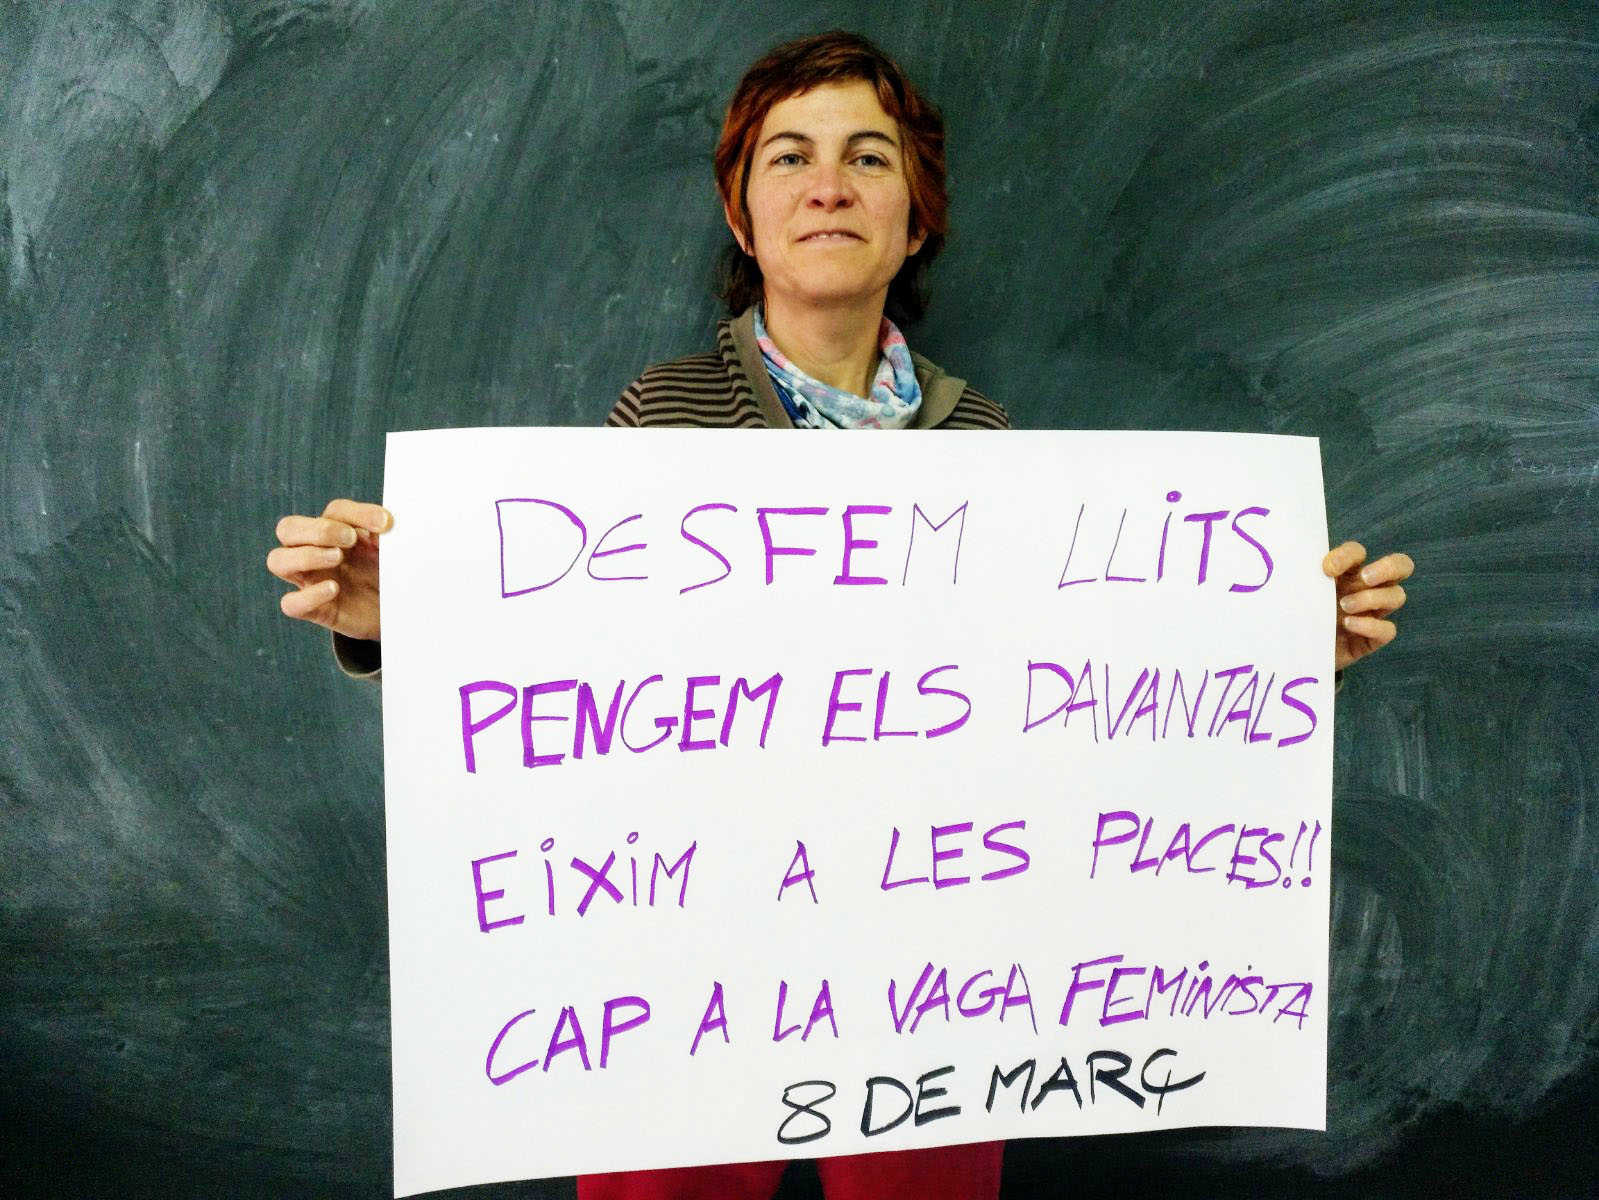 DESFEM LLiTS
PENGEM ELS DAVANTALS
EiXiM A LES PLACES!!
CAP A LA VAGA FEMiNiSTA
8 DE MARÇ